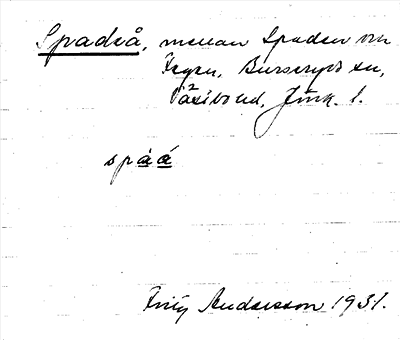 Spadeå, mellan Spaden och
Fegen, Burseryds sn,
Västbo hd, Jönk. l.
spåá
Fritz Andersson 1931.